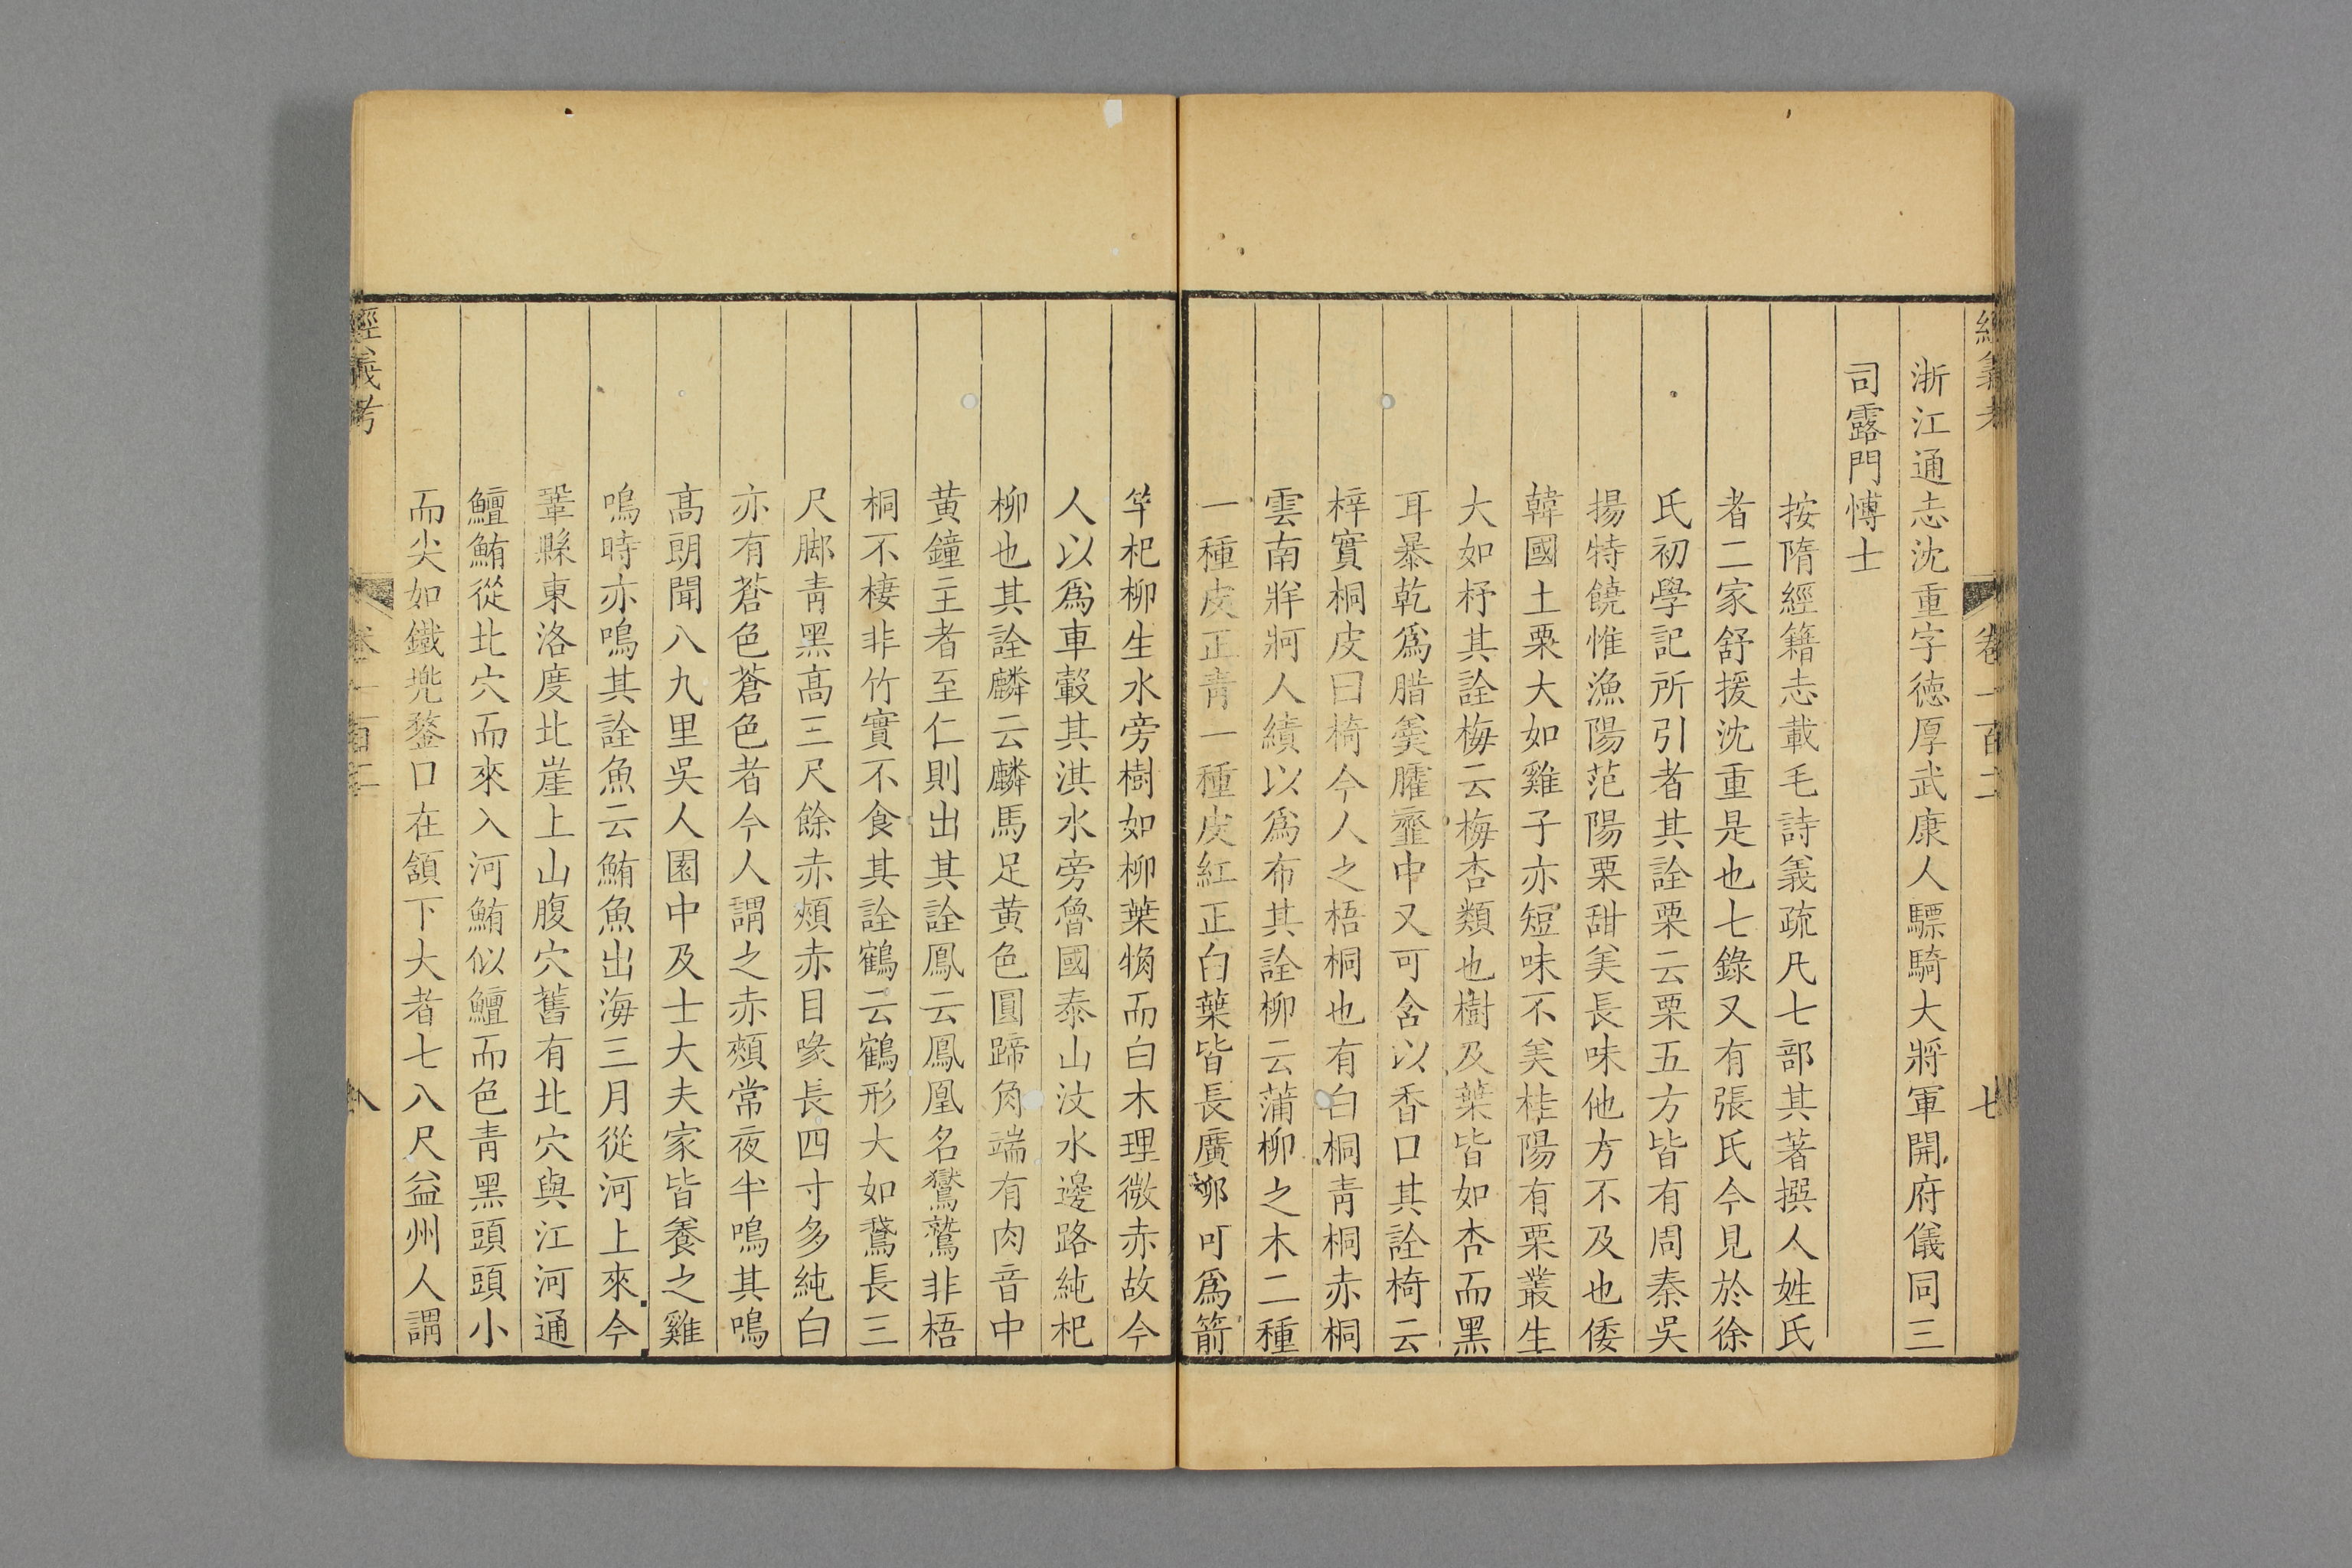 經義考 卷一百二 七
浙江通志沈重字德厚武康人驃騎大將軍開府儀同三
司露門博士
按隋經籍志載毛詩義疏凡七部其著撰人姓氏
者二家舒援沈重是也七錄又有張氏今見於徐
氏初學記所引者其詮栗云栗五方皆有周秦吳
揚特饒惟漁陽范陽栗甜美長味他方不及也倭
韓國土栗大如雞子亦短味不美桂陽有栗叢生
大如杼其詮梅云梅杏類也樹及葉皆如杏而黑
耳暴乾爲腊羹臛虀中又可含以香口其詮椅云
梓實桐皮曰椅今人之梧桐也有白桐青桐赤桐
雲南牂牁人績以爲布其詮柳云蒲柳之木二種
一種皮正青一種皮紅正白葉皆長廣柳可爲箭
竿杞柳生水旁樹如柳葉觕而白木理微赤故今
人以爲車轂其淇水旁魯國泰山汶水邊路純杞
柳也其詮麟云麟馬足黃色圓蹄角端有肉音中
黃鐘王者至仁則出其詮鳳云鳳凰名鸑鷟非梧
桐不棲非竹實不食其詮鶴云鶴形大如鵞長三
尺脚青黑高三尺餘赤頰赤目喙長四寸多純白
亦有蒼色蒼色者今人謂之赤頰常夜半鳴其鳴
高朗聞八九里吳人園中及士大夫家皆養之雞
鳴時亦鳴其詮魚云鮪魚出海三月從河上來今
鞏縣東洛度北崖上山腹穴舊有北穴與江河通
鱣鮪從北穴而來入河鮪似鱣而色青黑頭頭小
而尖如鐵兠鍪口在頷下大者七八尺益州人謂
經義考 卷一百二 八